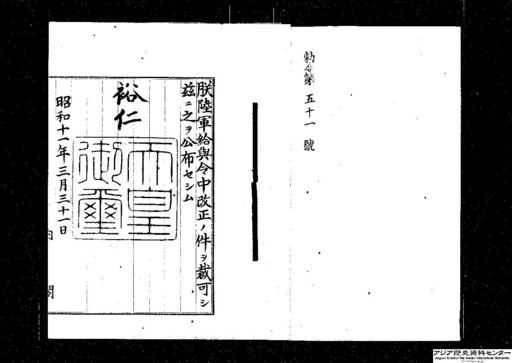 勅令第五十一號
朕陸軍給與令中改正ノ件ヲ裁可シ
茲ニ之ヲ公布セシム
裕仁
天皇
御璽
昭和十一年三月三十一日
内閣
アジア歴史資料センター
Japan Center for Asian Historical Records